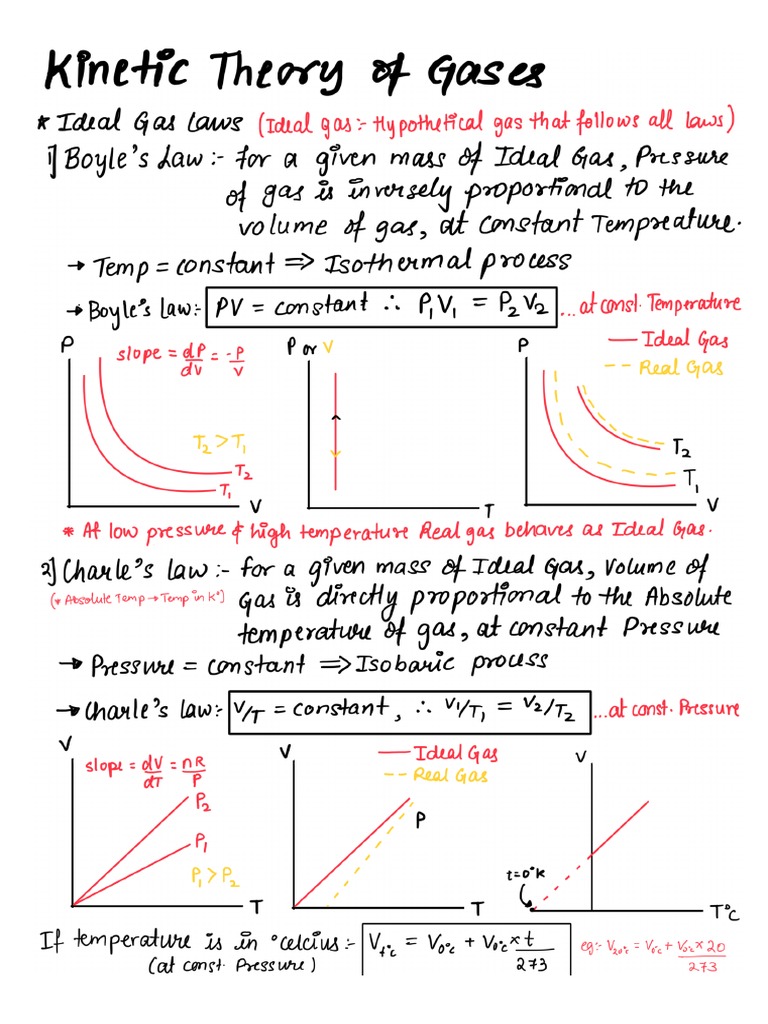 Kinetic Theory of Gases
* Ideal Gas Laws (Ideal gas:- Hypothetical gas that follows all laws)
1] Boyle's Law:- for a given mass of Ideal Gas, Pressure
of gas is inversely proportional to the
volume of gas, at constant Tempreature.
→ Temp = constant ⇒ Isothermal process
→ Boyle's Law:- PV = constant ∴ P₁V₁ = P₂V₂ ...at const. Temperature
P
slope = dP/dV = -P/V
T₂ > T₁
T₂
T₁
V
P or V
T
P
Ideal Gas
Real Gas
T₂
T₁
V
* At low pressure & high temperature Real gas behaves as Ideal Gas.
2] Charle's Law:- for a given mass of Ideal Gas, Volume of
(* Absolute Temp → Temp in K°) Gas is directly proportional to the Absolute
temperature of gas, at constant Pressure
→ Pressure = constant ⇒ Isobaric process
→ Charle's Law:- V/T = constant, ∴ V₁/T₁ = V₂/T₂ ...at const. Pressure
V
slope = dV/dT = nR/P
P₂
P₁
P₁ > P₂
T
V
Ideal Gas
Real Gas
P
T
V
t=0°K
T°C
If temperature is in °celcius:- V_t°c = V_0°c + V_0°c × t/273 eg:- V_20°c = V_0°c + V_0°c × 20/273
(at const. Pressure)